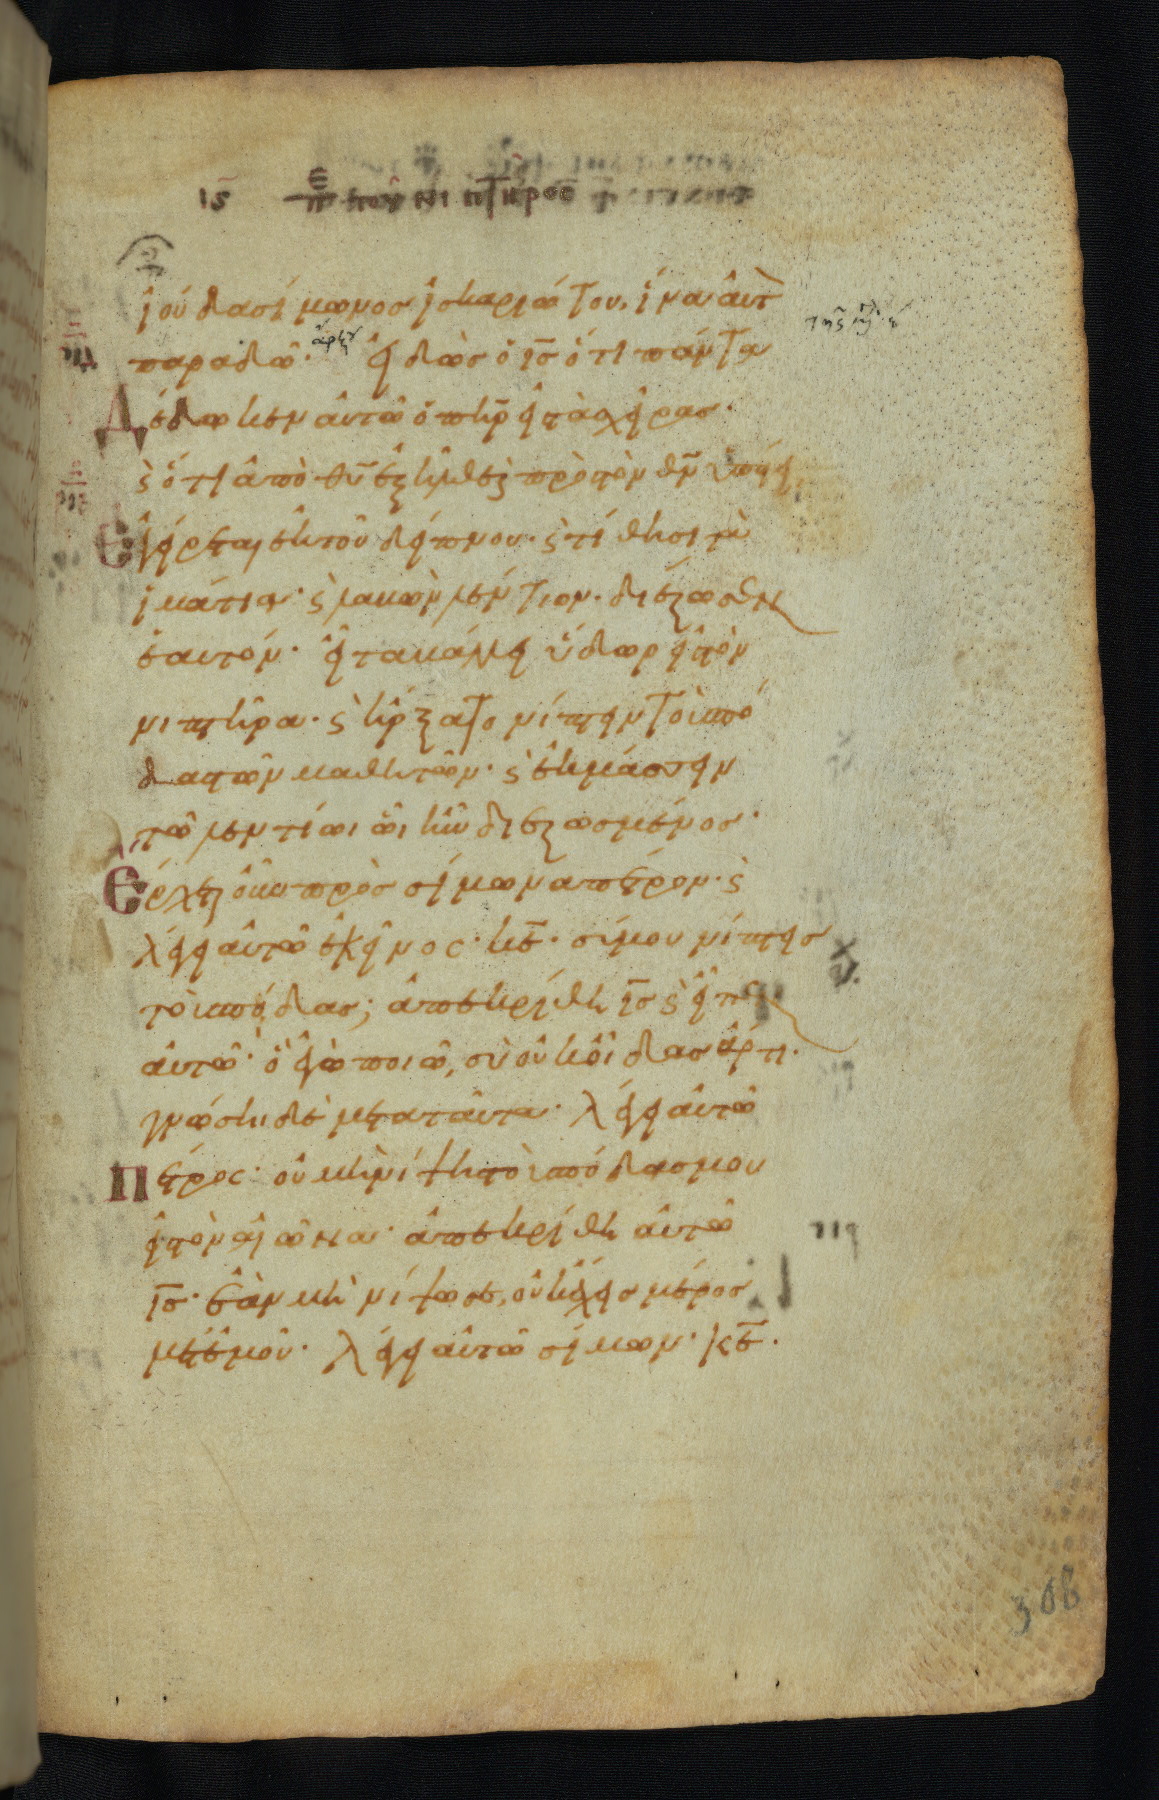 ιϛ π ε του νιπτῆρος
ἰούδα σίμωνος ἰσκαριώτου, ἵνα αὐτ
παραδῶ· ἀρχ εἰδὼς ὁ ις̅ ὅτι πάντα
Δέδωκεν αὐτῶ ὁ πηρ̅ εἰς τὰς χεῖρας·
ϛ ὅτι ἀπὸ θυ̅ ἐξῆλθε ϛ πρὸς τὸν θν̅ ὑπάγει
Ἐγείρεται ἐκ τοῦ δείπνου· ϛ τίθησι τὰ
ἱμάτια· ϛ λαβὼν λέντιον. διέζωσεν
ἑαυτόν· εἶτα βάλλει ὕδωρ εἰς τὸν
νιπτῆρα· ϛ ἤρξατο νίπτειν τοὺς πό
δας τῶν μαθητῶν· ϛ ἐκμάσσειν
τῶ λεντίωι ὧι ἦν διεζωσμένος·
Ἔρχεται οὖν πρὸς σίμωνα πέτρον· ϛ
λέγει αὐτῶ ἐκεῖνος· κε̅· σύ μου νίπτεις
τοὺς πόδας; ἀπεκρίθη ις̅ ϛ εἶπεν
αὐτῶ· ὃ ἐγὼ ποιῶ, σὺ οὐκ οἶδας ἄρτι·
γνώση δὲ μετα ταῦτα· λέγει αὐτῶ
Πέτρος· οὐ μὴ νίψης τοὺς πόδας μου
εἰς τὸν αἰῶνα· ἀπεκρίθη αὐτῶ
ις̅· ἐὰν μὴ νίψω σε, οὐκ ἔχεις μέρος
μετ' ἐμοῦ· λέγει αὐτῶ σίμων· κε̅·
306